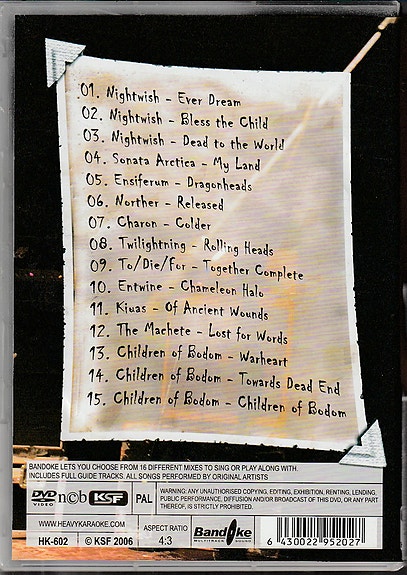 01. Nightwish - Ever Dream
02. Nightwish - Bless the Child
03. Nightwish - Dead to the World
04. Sonata Arctica - My Land
05. Ensiferum - Dragonheads
06. Norther - Released
07. Charon - Colder
08. Twilightning - Rolling Heads
09. To/Die/For - Together Complete
10. Entwine - Chameleon Halo
11. Kiuas - Of Ancient Wounds
12. The Machete - Lost for Words
13. Children of Bodom - Warheart
14. Children of Bodom - Towards Dead End
15. Children of Bodom - Children of Bodom
BANDOKE LETS YOU CHOOSE FROM 16 DIFFERENT MIXES TO SING OR PLAY ALONG WITH.
INCLUDES FULL GUIDE TRACKS. ALL SONGS PERFORMED BY ORIGINAL ARTISTS
DVD VIDEO
ncb
KSF
PAL
WARNING: ANY UNAUTHORISED COPYING, EDITING, EXHIBITION, RENTING, LENDING,
PUBLIC PERFORMANCE, DIFFUSION AND/OR BROADCAST OF THIS DVD, OR ANY PART
THEREOF, IS STRICTLY PROHIBITED.
WWW.HEAVYKARAOKE.COM
HK-602
© KSF 2006
ASPECT RATIO
4:3
Bandoke
MULTITRACK KARAOKE
6 430022 952027